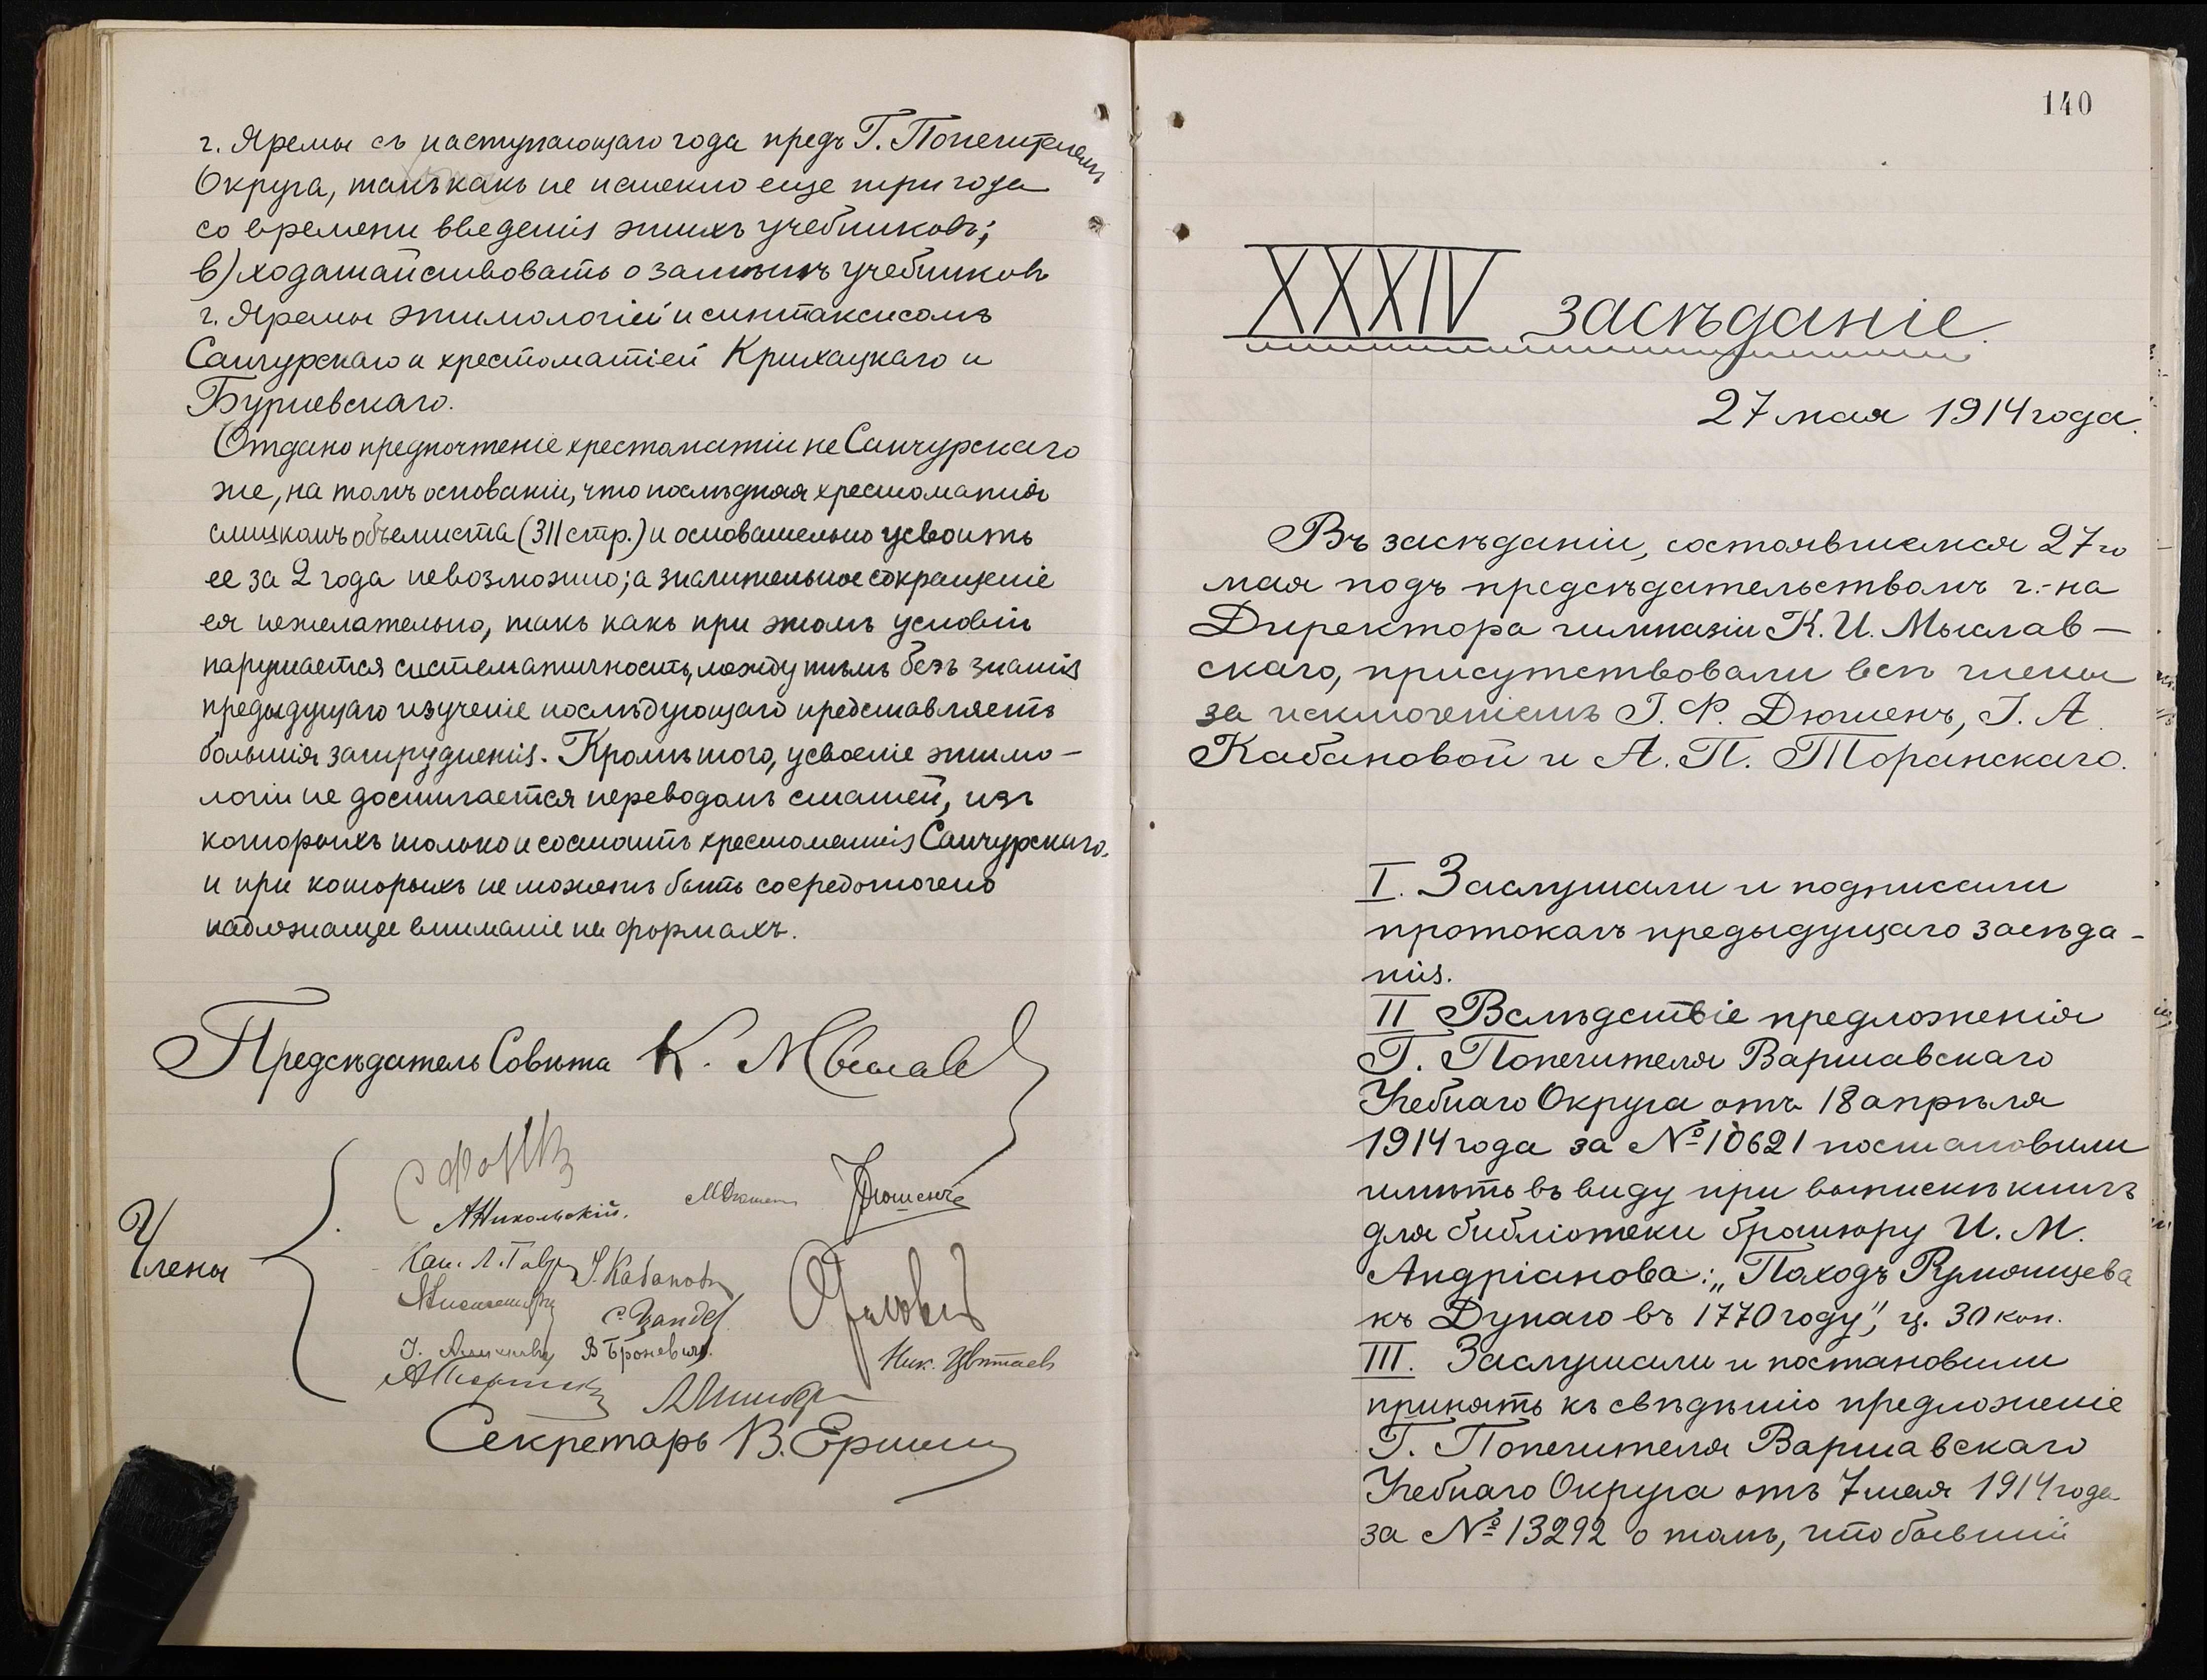 г. Яремы съ наступающаго года предъ Г. Попечителемъ
Округа, такъ какъ не истекло еще три года
со времени введенія этихъ учебниковъ;
в) ходатайствовать о замѣнѣ учебниковъ
г. Яремы этимологіей и синтаксисомъ
Санчурскаго и хрестоматіей Крихацкаго и
Буриевскаго.
Отдано предпочтеніе хрестоматіи не Санчурскаго
же, на томъ основаніи, что послѣдняя хрестоматія
слишкомъ объемиста (311 стр.) и основательно усвоить
ее за 2 года невозможно; а значительное сокращеніе
ея нежелательно, такъ какъ при этомъ условіи
нарушается систематичность, между тѣмъ безъ знанія
предыдущаго изученіе послѣдующаго представляетъ
большія затрудненія. Кромѣ того, усвоеніе этимо-
логіи не достигается переводомъ статей, изъ
которыхъ только и состоитъ хрестоматія Санчурскаго
и при которыхъ не можетъ быть сосредоточено
надлежащее вниманіе на формахъ.
Предсѣдатель Совѣта К. Мыслав
Члены
А Никольскій. М Дюшен Дюшенъ
Кан. Л. Гавр І. Кабанова
С. Zandel
В Броневичъ. Ник. Цвѣтаевъ
Секретарь В. Ершин
140
XXXIV засѣданіе.
27 мая 1914 года.
Въ засѣданіи, состоявшемся 27го
мая подъ предсѣдательствомъ г.-на
Директора гимназіи К. И. Мыслав-
скаго, присутствовали всѣ члены
за исключеніемъ І. Ф. Дюшенъ, І. А.
Кабановой и А. П. Торанскаго.
I. Заслушали и подписали
протоколъ предыдущаго засѣда-
нія.
II Вслѣдствіе предложенія
Г. Попечителя Варшавскаго
Учебнаго Округа отъ 18 апрѣля
1914 года за № 10621 постановили
имѣть въ виду при выпискѣ книгъ
для библіотеки брошюру И. М.
Андріанова: „Походъ Румянцева
къ Дунаю въ 1770 году", ц. 30 коп.
III. Заслушали и постановили
принять къ свѣдѣнію предложеніе
Г. Попечителя Варшавскаго
Учебнаго Округа отъ 7 мая 1914 года
за № 13292 о томъ, что бывшій